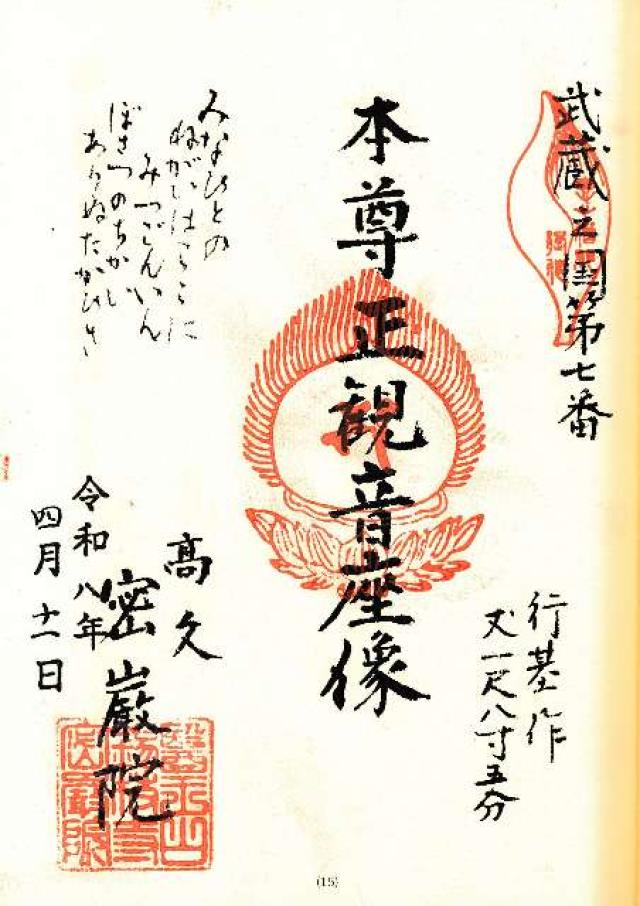 武蔵之国第七番
行基作
丈一尺八寸五分
本尊正観音座像
みなひとの
ねがいはここに
みつごんいん
ぼさつのちかい
ありぬたがひさ
高久
密巌院
令和八年
四月十一日
(15)